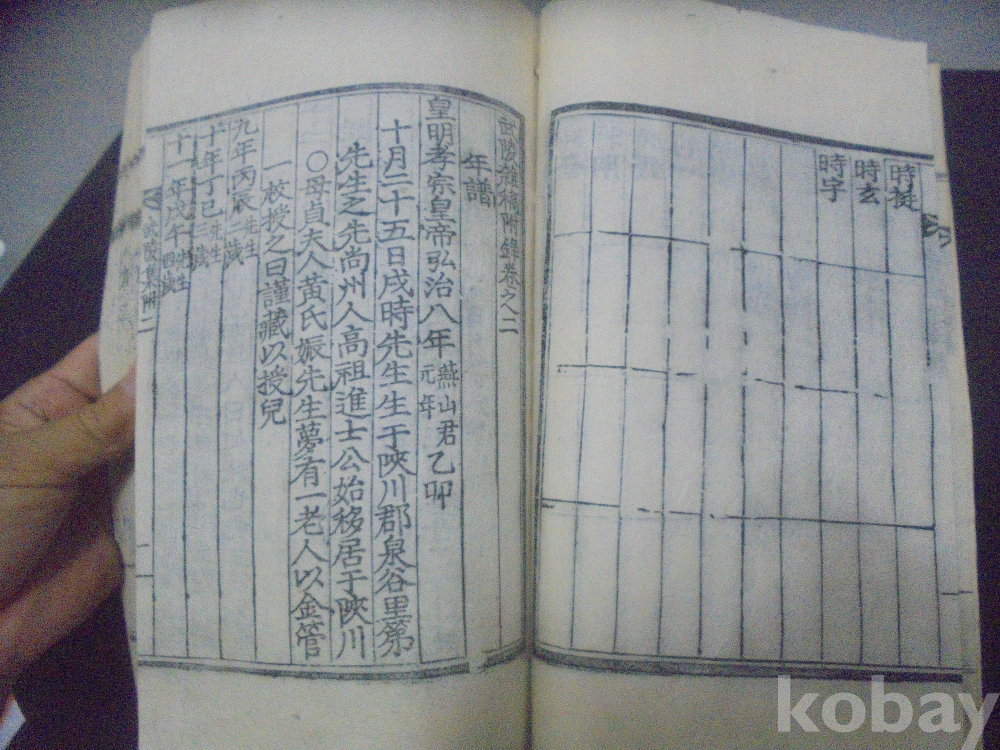 時梴
時玄
時字
武陵雜稿附錄卷之二
年譜
皇明孝宗皇帝弘治八年燕山君元年乙卯
十月二十五日戌時先生生于陜川郡泉谷里第
先生之先尚州人高祖進士公始移居于陜川
○母貞夫人黃氏娠先生夢有一老人以金管
一枚授之曰謹藏以授兒
九年丙辰先生二歲
十年丁巳先生三歲
十一年戊午先生四歲
武陵集附二
kobay